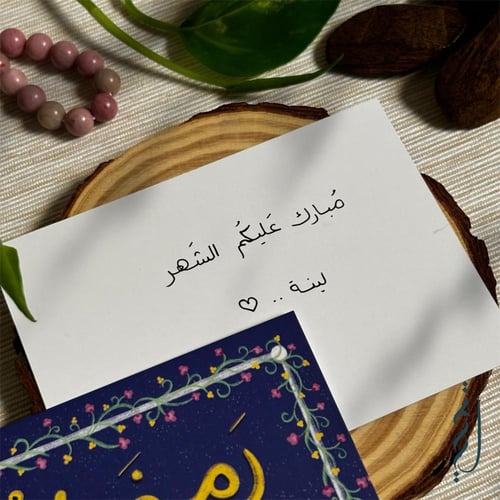 مُبارك عَليكُم الشَهر
لبنة .. ♡